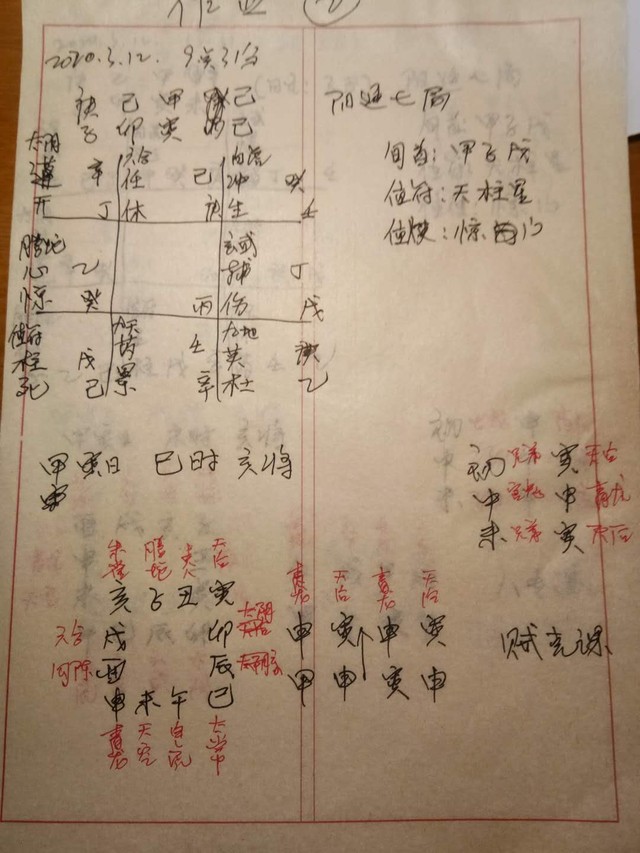 作业
2020.3.12. 9点31分
庚 己 甲 己
子 卯 寅 巳
阴遁七局
旬首:甲子戊
值符:天柱星
值使:惊门
太阴 六合 白虎
蓬 辛 任 己 冲 癸
开 丁 休 庚 生 壬
腾蛇 玄武
心 乙 辅 丁
惊 癸 丙 伤 戊
值符 九天 九地
柱 戊 芮 壬 英 庚
死 己 景 辛 杜 乙
甲寅日 巳时 亥将
初 兄弟 寅 天后
中 官鬼 申 青龙
末 兄弟 寅 天后
朱雀 腾蛇 贵人 天后
亥 子 丑 寅
六合 戌 卯 太阴
勾陈 酉 辰
申 未 午 巳
青龙 天空 白虎 太常
青龙 天后 青龙 天后
申 寅 申 寅
甲 申 寅 申
贼克课